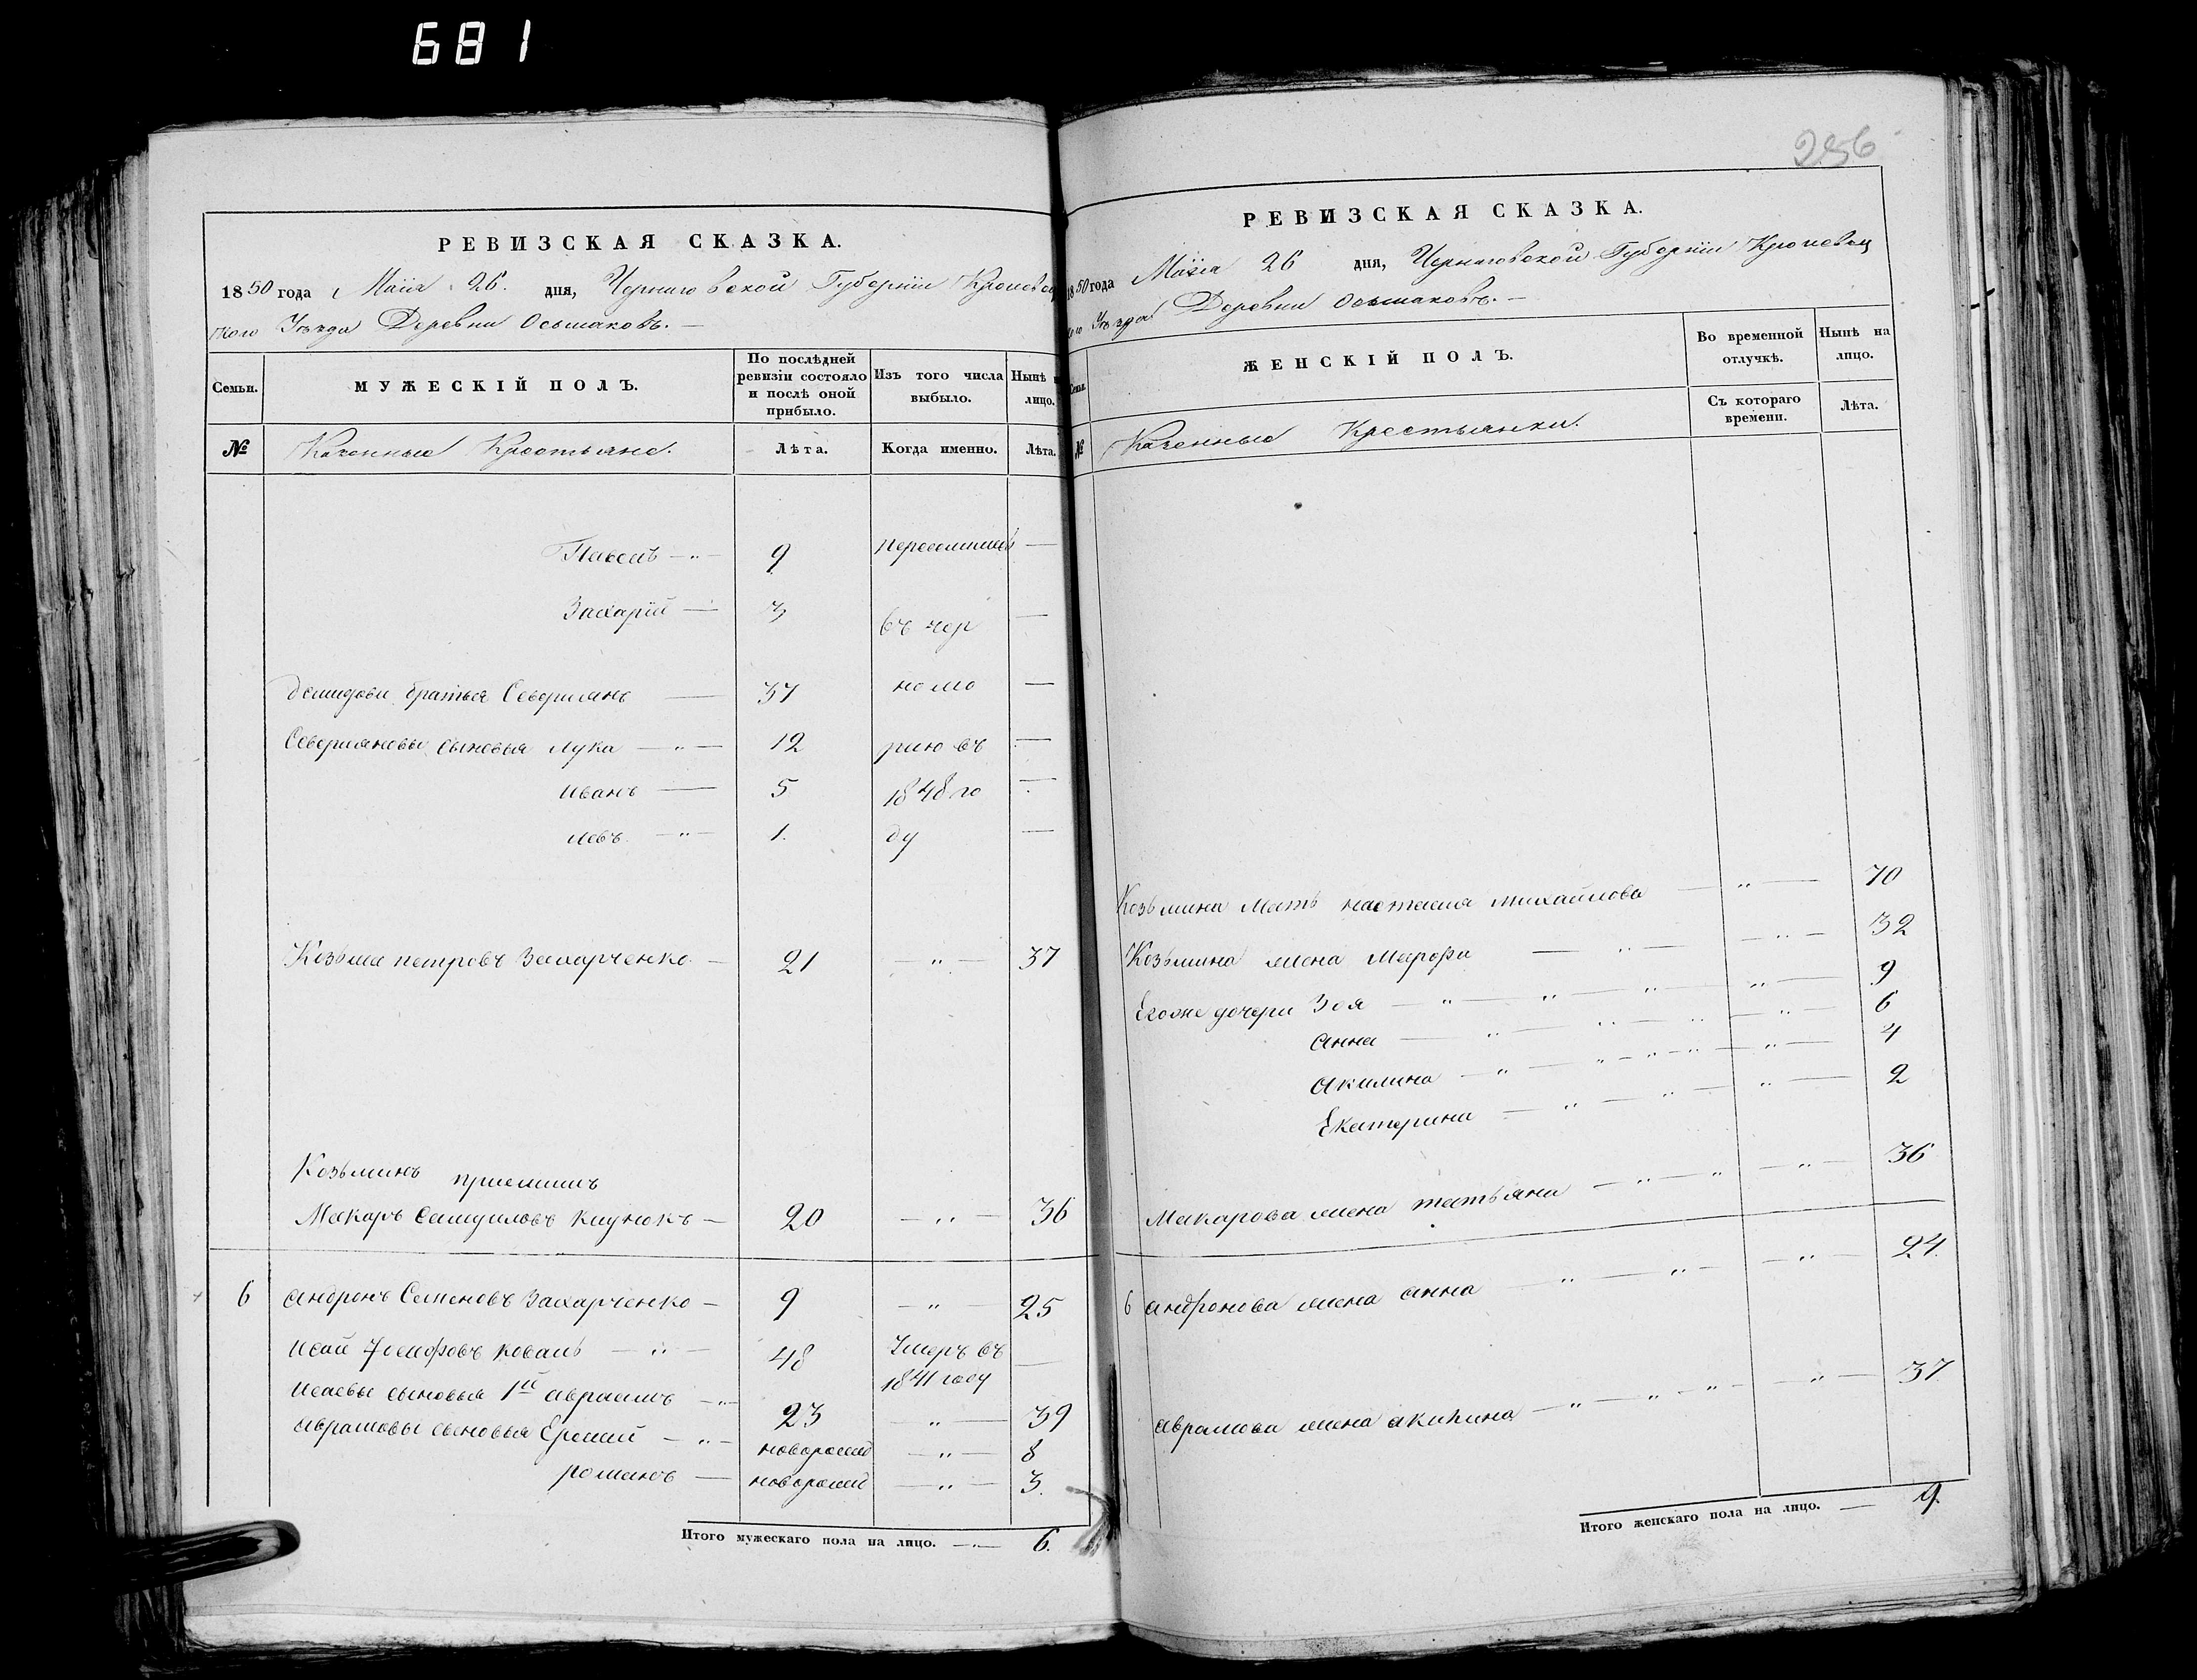 681
РЕВИЗСКАЯ СКАЗКА.
1850 года Маія 26. дня, Черниговской Губерніи Кролевец
кого Уѣзда Деревни Осьмаковъ. —
Семьи. МУЖЕСКІЙ ПОЛЪ. По послѣдней ревизіи состояло и послѣ оной прибыло. Изъ того числа выбыло. Нынѣ лицо.
№ Казенные Крестьяне. Лѣта. Когда именно. Лѣта.
Павелъ 9 переселились —
Захарій — 3 въ чер —
Демидови братья Северіянъ — 37 номо —
Северіяновы сыновья Лука 12 рию въ —
Иванъ — 5 1848 го —
Левъ 1. ду —
Козьма петровъ Захарченко — 21 — „ — 37
Козьминъ приемишъ
Макаръ Самуиловъ — 20 — „ — 36
6 Андронъ Семеновъ Захарченко — 9 — „ — 25
Исай коваль 48 Умеръ въ 1841 году —
Исаевы сыновья 1й Авраамъ 23 — „ — 39
Аврамовы сыновья Еремий новорожд — „ — 8
романъ — новорожд — „ — 3.
Итого мужескаго пола на лицо. 6.
256
РЕВИЗСКАЯ СКАЗКА.
1850 года Маія 26 дня, Черниговской Губерніи Кролевец
кого Уѣзда Деревни Осьмаковъ. —
Семьи. ЖЕНСКІЙ ПОЛЪ. Во временной отлучкѣ. Нынѣ на лицо.
№ Казенные Крестьянки. Съ котораго времени. Лѣта.
Козьмина мать настасия михайлова — „ — 70
Козьмина жена Марфа — „ — 32
Егоже дочери Зоя — „ — 9
Анна — „ — 6
Акилина — „ — 4
Екатерина — „ — 2
Макарова жена татьяна — „ — 36
6 Андронова жена Анна — „ — 24.
Аврамова жена Акилина — „ — 37
Итого женскаго пола на лицо. — 9.